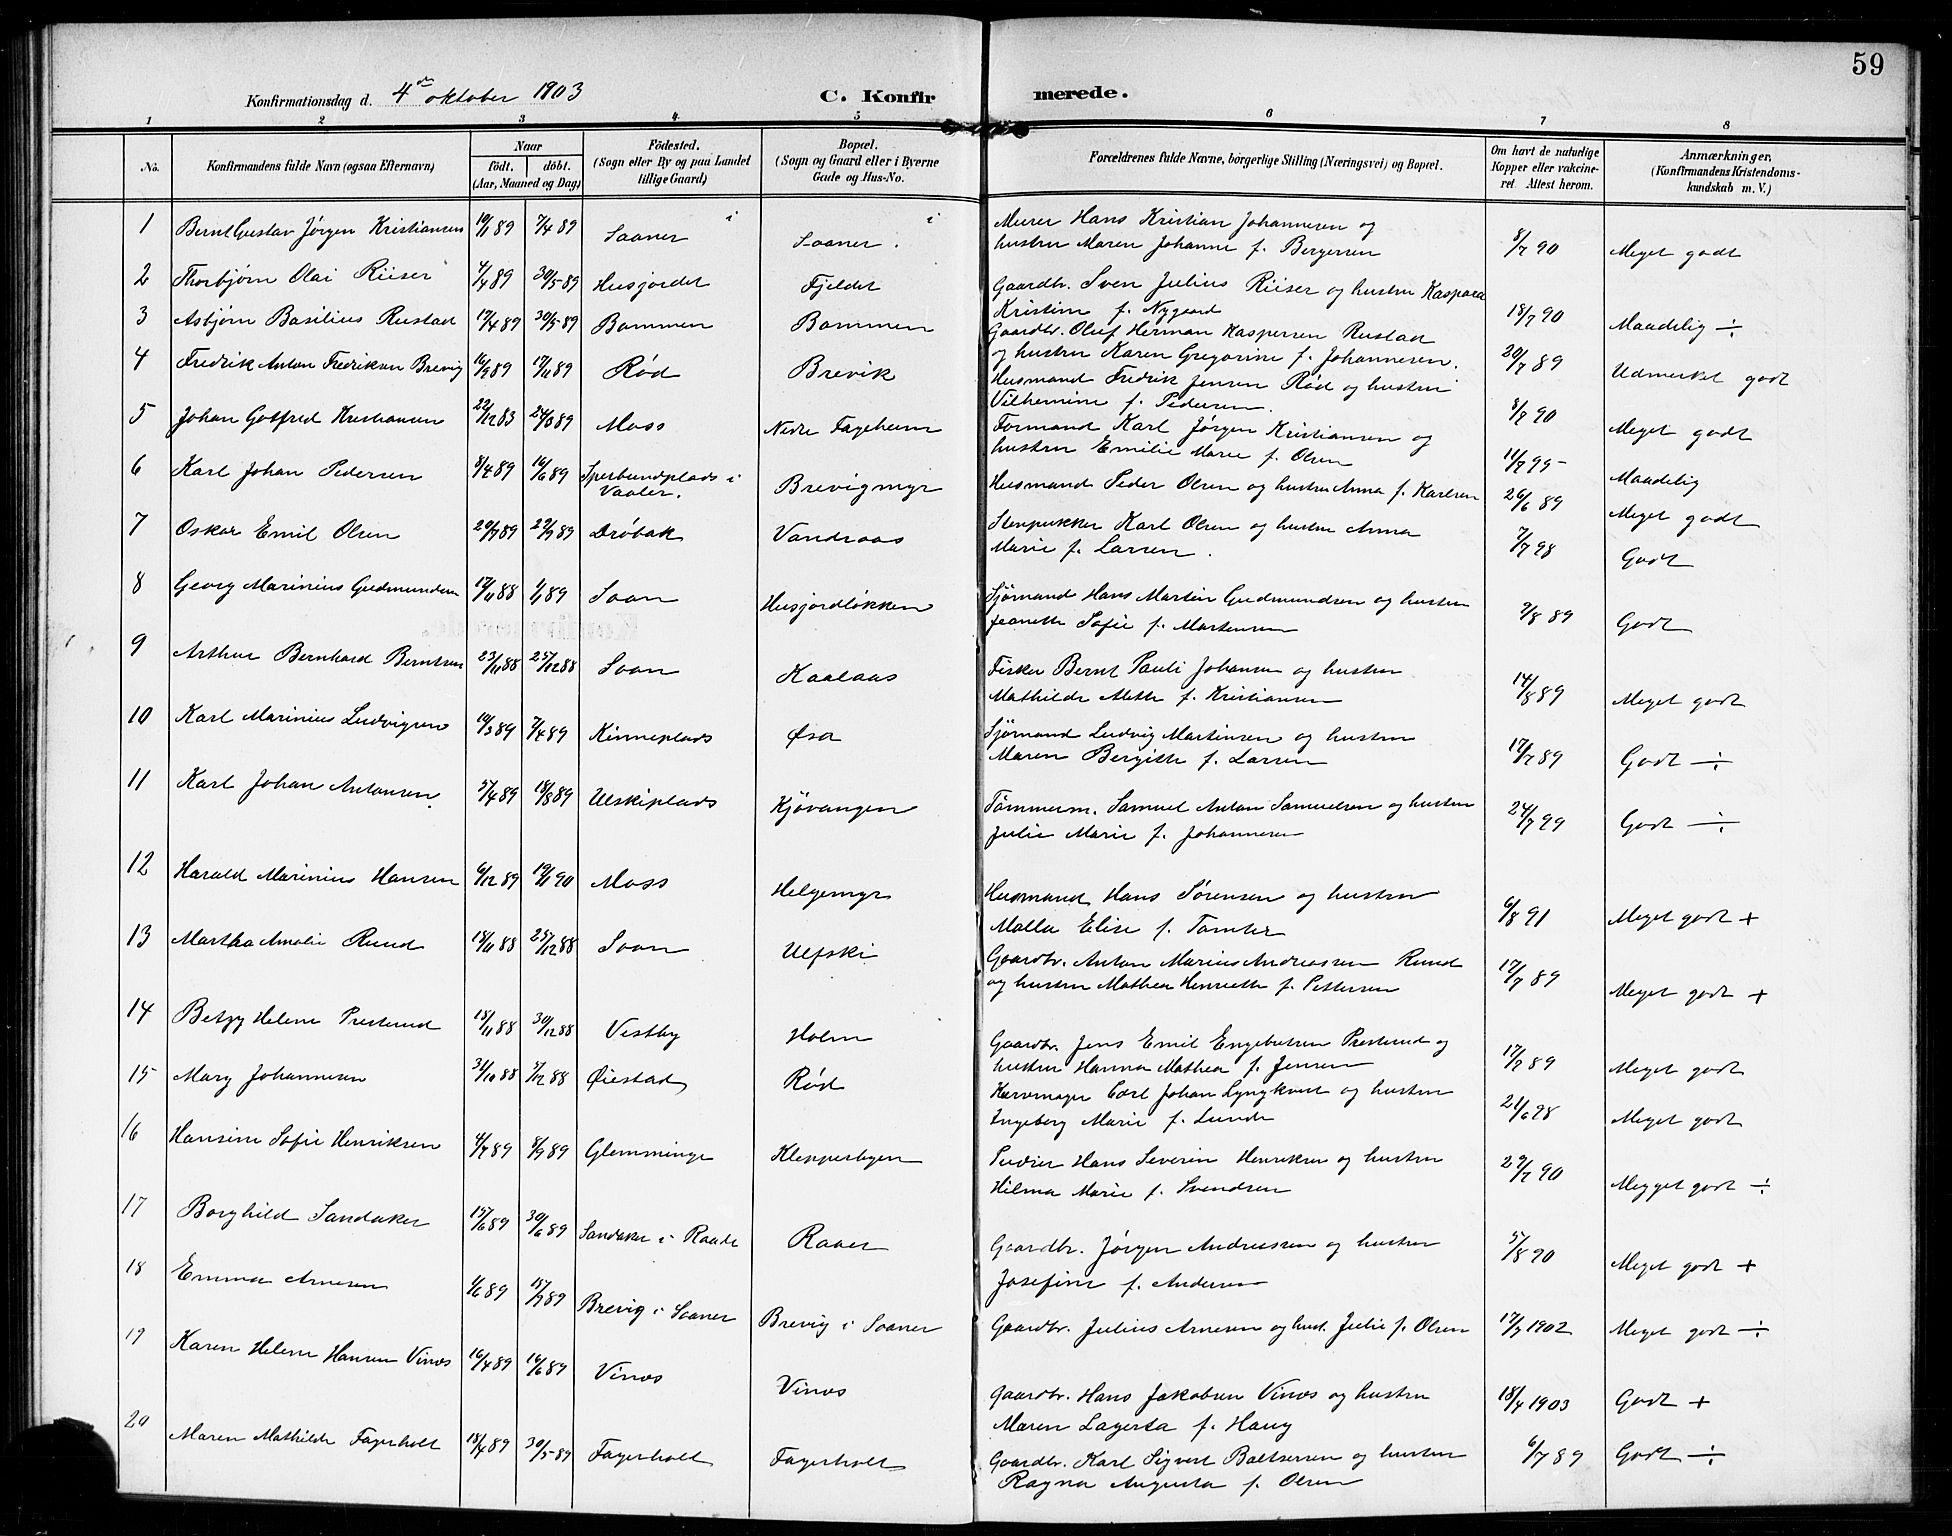 59
Konfirmationsdag d. 4de oktober 1903 C. Konfirmerede.
1 2 3 4 5 6 7 8
No. Konfirmandens fulde Navn (ogsaa Efternavn) Naar födt. döbt. (Aar, Maaned og Dag) Födested. (Sogn eller By og paa Landet tillige Gaard) Bopæl. (Sogn og Gaard eller i Byerne Gade og Hus-No. Forældrenes fulde Navne, borgerlige Stilling (Næringsvei) og Bopæl. Om havt de naturlige Kopper eller vakcineret. Attest herom. Anmærkninger. (Konfirmandens Kristendomskundskab m. V.)
1 Bernt Gustav Jørgen Kristiansen 19/1 89 7/4 89 Saaner Saaner. Murer Hans Kristian Johannesen og
hustru Maren Johanne f. Bergersen 8/7 90 Meget godt
2 Thorbjørn Olai Riiser 4/4 89 30/5 89 Husjordet Fjeldet Gaardbr. Sven Julius Riiser og hustru Kaspara
Kristine f. Nygaard 18/7 90 Maadelig ÷
3 Asbjørn Basilius Rustad 19/4 89 30/5 89 Bommen Bommen Gaardbr. Oluf Herman Kaspersen Rustad
og hustru Karen Gregorine f. Johannesen. 20/7 89 Udmerket godt
4 Fredrik Anton Fredriksen Brevig 16/9 89 17/11 89 Rød Brevik Husmand Fredrik Jensen Rød og hustru
Vilhemine f. Pedersen. 8/8 90 Meget godt
5 Johan Gotfred Kristiansen 22/12 83 24/3 89 Moss Nedre Fageheim Formand Karl Jørgen Kristiansen og
hustru Emilie Marie f. Olsen 11/7 95 Maadelig
6 Karl Johan Pedersen 8/4 89 16/6 89 Sperbundplads i Vaaler. Brevigmyr Husmand Peder Olsen og hustru Anna f. Karlsen 26/6 89 Meget godt
7 Oskar Emil Olsen 20/7 89 29/9 89 Drøbak Vandraas Stenpukker Karl Olsen og hustru Anna
Marie f. Larsen. 7/7 98 Godt
8 Georg Marinius Gudmundsen 17/11 88 1/1 89 Soon Husjordløkken Sjømand Hans Martin Gudmundsen og hustru
Jeanette Sofie f. Martinsen 9/8 89 Godt
9 Arthur Bernhard Berntsen 23/11 88 25/12 88 Soon Kaalaas Fisker Bernt Pauli Johansen og hustru
Mathilde Mette f. Kristiansen 14/8 89 Meget godt
10 Karl Marinius Ludvigsen 10/3 89 7/4 89 Kinneplads Øsa Sjømand Ludvig Martinsen og hustru
Maren Bergitte f. Larsen 17/7 89 Godt ÷
11 Karl Johan Antonsen. 5/4 89 18/8 89 Ulskiplads Kjøvangen Tømmerm. Samuel Anton Samuelsen og hustru
Julie Marie f. Johannesen 24/7 99 Godt ÷
12 Harald Marinius Hansen 6/12 89 19/1 90 Moss Helgemyr Husmand Hans Sørensen og hustru
Malla Elise f. Tomter 6/8 91 Meget godt +
13 Martha Amalie Rund 18/11 88 25/12 88 Soon Ulfski Gaardbr. Anton Marius Andreassen Rund
og hustru Mathea Henriette f. Pettersen 17/7 89 Meget godt +
14 Betzy Helene Presterud 18/11 88 30/12 88 Vestby Holm Gaardbr. Jens Emil Engebretsen Presterud og
hustru Hanna Mathea f. Jensen 17/7 89 Meget godt
15 Mary Johannesen 31/10 88 7/12 88 Øiestad Rød Carl Johan Lyngkvist og hustru
Ingeborg Marie f. Lunde 21/6 98 Meget godt
16 Hansine Sofie Henriksen 4/7 89 8/9 89 Glemminge Klepperbyen Hans Severin Henriksen og hustru
Hilma Marie f. Svendsen 29/7 90 Megget godt ÷
17 Borghild Sandaker 15/6 89 30/6 89 Sandaker i Raade Raaer Gaardbr. Jørgen Andreassen og hustru
Josefine f. Andersen 5/8 90 Meget godt +
18 Emma Arnesen 1/6 89 15/9 89 Brevig i Saaner Brevig i Saaner Gaardbr. Julius Arnesen og hust. Julie f. Olsen 17/7 1902 Meget godt ÷
19 Karen Helene Hansen Vinæs 16/4 89 16/6 89 Vinæs Vinæs Gaardbr. Hans Jakobsen Vinæs og hustru
Maren Lagerta f. Haug 18/4 1903 Godt +
20 Maren Mathilde Fagerholt 18/4 89 30/5 89 Fagerholt Fagerholt Gaardbr. Karl Sigvert Baltsersen og hustru
Ragna Augusta f. Olsen 6/7 89 Godt ÷